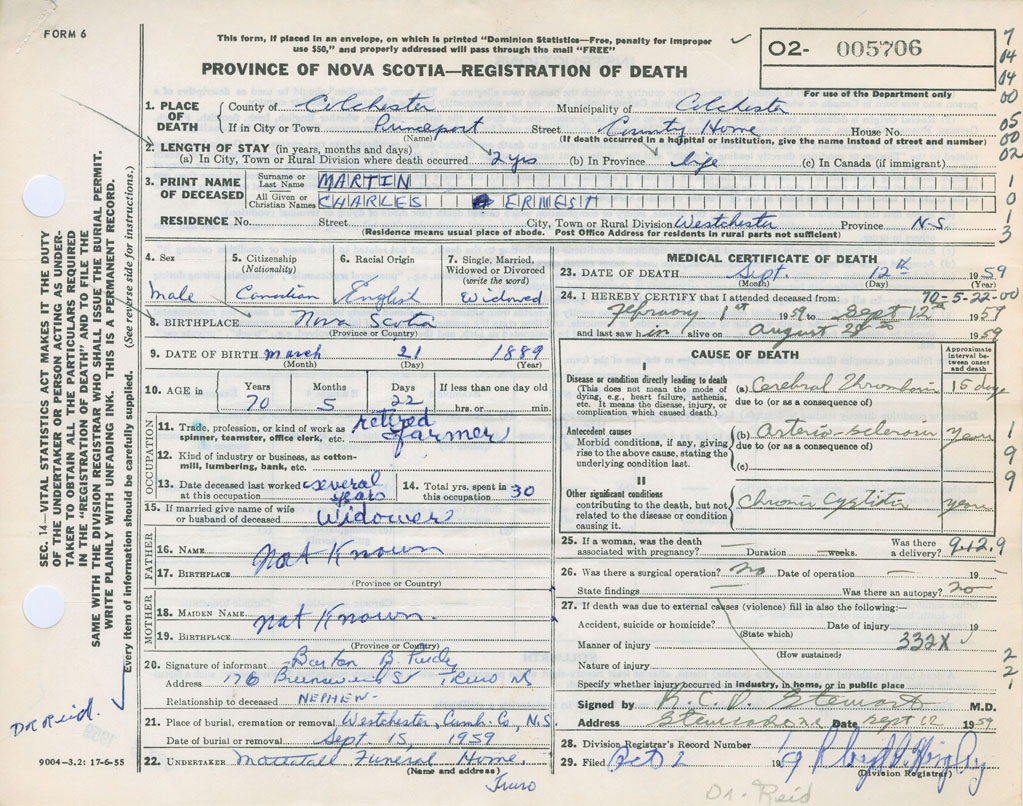 FORM 6
This form, if placed in an envelope, on which is printed "Dominion Statistics—Free, penalty for improper
use $50," and properly addressed will pass through the mail "FREE"
PROVINCE OF NOVA SCOTIA—REGISTRATION OF DEATH
O2- 005706
For use of the Department only
7
04
04
00
05
00
02
1
0
1
3
1
9
9
2
2
1
SEC. 14—VITAL STATISTICS ACT MAKES IT THE DUTY
OF THE UNDERTAKER OR PERSON ACTING AS UNDER-
TAKER TO OBTAIN ALL THE PARTICULARS REQUIRED
IN THE "REGISTRATION OF DEATH" AND TO FILE THE
SAME WITH THE DIVISION REGISTRAR WHO SHALL ISSUE THE BURIAL PERMIT.
WRITE PLAINLY WITH UNFADING INK. THIS IS A PERMANENT RECORD.
Every item of information should be carefully supplied. (See reverse side for instructions.)
Dr Reid.
9004—3.2: 17-6-55
1. PLACE OF DEATH
County of Colchester Municipality of Colchester
If in City or Town Princeport Street County Home House No.
(Name) (If death occurred in a hospital or institution, give the name instead of street and number)
2. LENGTH OF STAY (in years, months and days)
(a) In City, Town or Rural Division where death occurred 2 yrs (b) In Province life (c) In Canada (if immigrant)
3. PRINT NAME OF DECEASED
Surname or Last Name MARTIN
All Given or Christian Names CHARLES ERNEST
RESIDENCE No. Street City, Town or Rural Division Westchester Province N.S.
(Residence means usual place of abode. Post Office Address for residents in rural parts not sufficient)
4. Sex 5. Citizenship (Nationality) 6. Racial Origin 7. Single, Married, Widowed or Divorced (write the word)
male Canadian English Widowed
8. BIRTHPLACE Nova Scotia
(Province or Country)
9. DATE OF BIRTH March 21 1889
(Month) (Day) (Year)
10. AGE in Years Months Days If less than one day old
70 5 22 hrs. or min.
OCCUPATION
11. Trade, profession, or kind of work as spinner, teamster, office clerk, etc. retired farmer
12. Kind of industry or business, as cotton-mill, lumbering, bank, etc.
13. Date deceased last worked at this occupation several years
14. Total yrs. spent in this occupation 30
15. If married give name of wife or husband of deceased Widower
FATHER
16. NAME Not Known
17. BIRTHPLACE
(Province or Country)
MOTHER
18. MAIDEN NAME not Known.
19. BIRTHPLACE
(Province or Country)
20. Signature of informant Barton B. Purdy
Address 176 Brunswick St Truro NS
Relationship to deceased NEPHEW-
21. Place of burial, cremation or removal Westchester, Cumb. Co, N.S.
Date of burial or removal Sept. 15, 1959
22. UNDERTAKER Mattatall Funeral Home,
(Name and address)
Truro
MEDICAL CERTIFICATE OF DEATH
23. DATE OF DEATH Sept. 12th 1959
(Month) (Day) (Year)
70-5-22-00
24. I HEREBY CERTIFY that I attended deceased from:
February 1st 1959 to Sept 12th 1959
and last saw him alive on August 29th 1959
CAUSE OF DEATH
Approximate interval between onset and death
I
Disease or condition directly leading to death
(This does not mean the mode of dying, e.g., heart failure, asthenia, etc. It means the disease, injury, or complication which caused death.)
(a) Cerebral Thrombosis 15 days
due to (or as a consequence of)
Antecedent causes
Morbid conditions, if any, giving rise to the above cause, stating the underlying condition last.
(b) Arterio-sclerosis years
due to (or as a consequence of)
(c)
II
Other significant conditions
contributing to the death, but not related to the disease or condition causing it.
Chronic Cystitis years
25. If a woman, was the death associated with pregnancy? — Duration — weeks. Was there a delivery? 9.12.9
26. Was there a surgical operation? no Date of operation — 19 —
State findings — Was there an autopsy? no
27. If death was due to external causes (violence) fill in also the following:—
Accident, suicide or homicide? Date of injury 19
(State which)
Manner of injury 332X
(How sustained)
Nature of injury
Specify whether injury occurred in industry, in home, or in public place
Signed by R.C.D. Stewart M.D.
Address Date Sept 12 1959
28. Division Registrar's Record Number
29. Filed Oct 2 19
(Division Registrar)
Dr. Reid